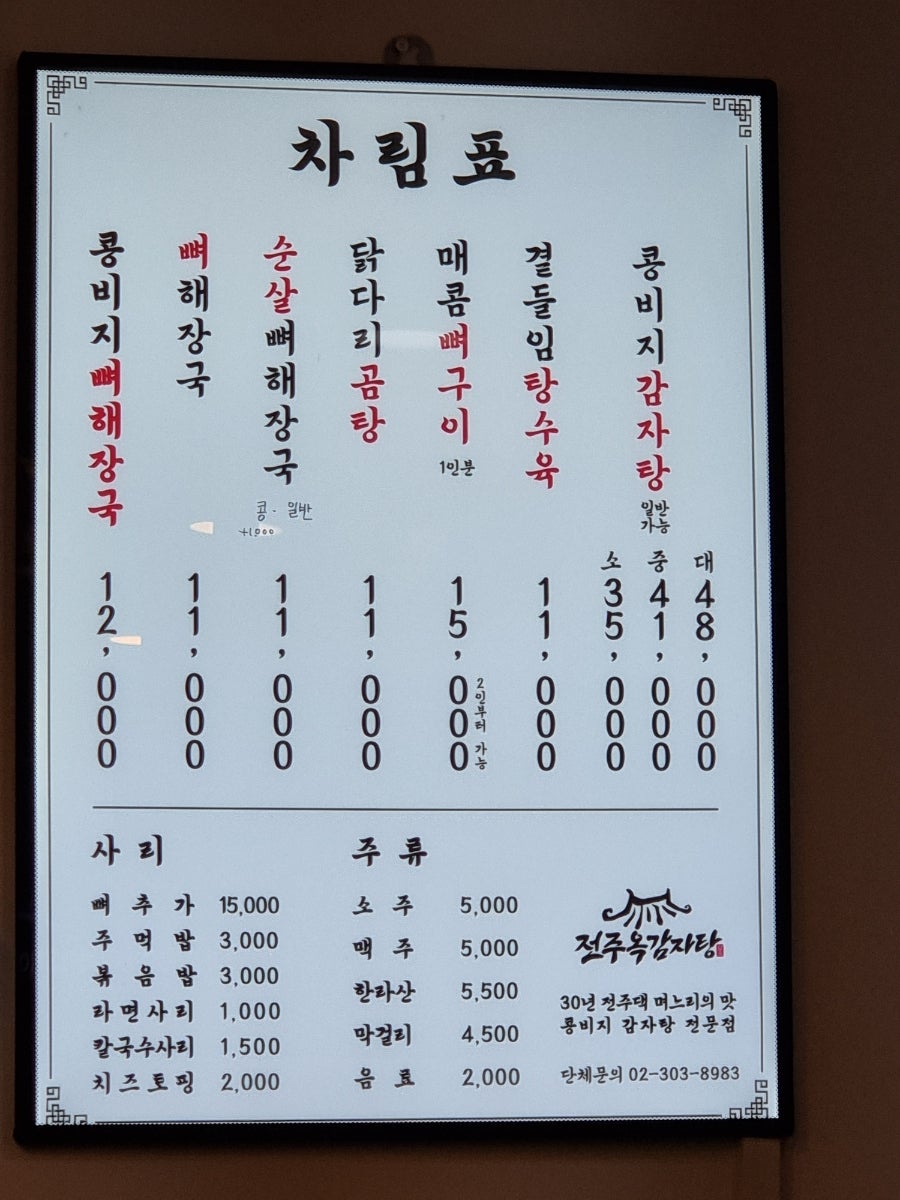 차림표
콩비지뼈해장국
12,000
뼈해장국
11,000
순살뼈해장국
콩 · 일반
+1,000
11,000
닭다리곰탕
11,000
매콤뼈구이
1인분
15,000
2인부터 가능
곁들임탕수육
11,000
콩비지감자탕
일반
가능
소 중 대
35,000 41,000 48,000
사리
뼈추가 15,000
주먹밥 3,000
볶음밥 3,000
라면사리 1,000
칼국수사리 1,500
치즈토핑 2,000
주류
소주 5,000
맥주 5,000
한라산 5,500
막걸리 4,500
음료 2,000
전주옥감자탕
30년 전주댁 며느리의 맛
콩비지 감자탕 전문점
단체문의 02-303-8983